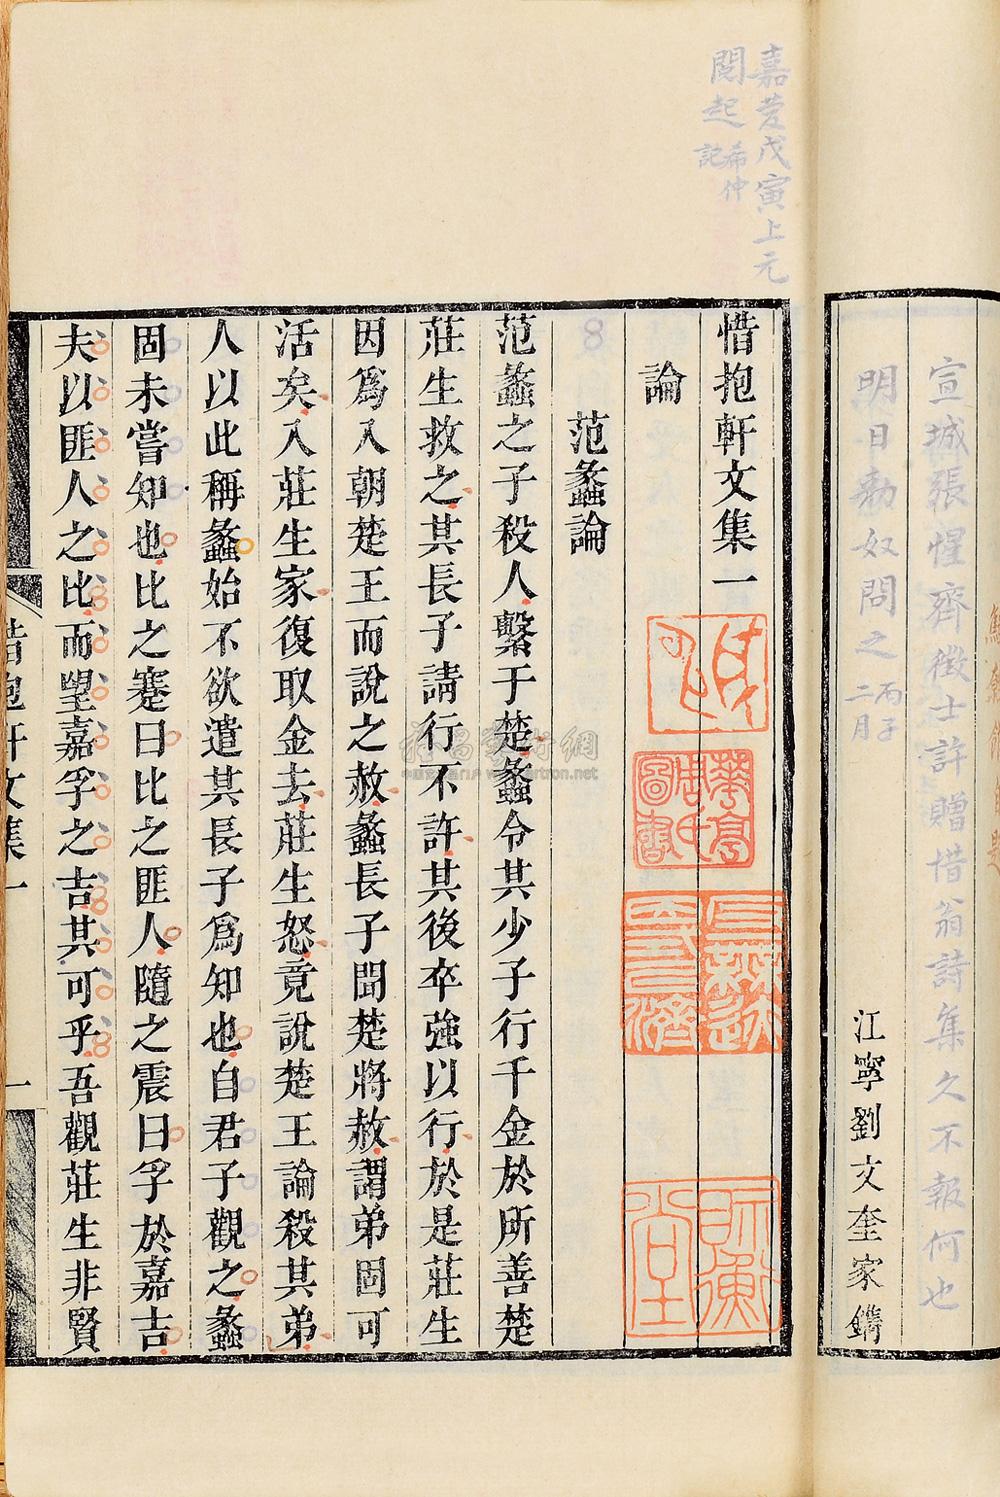 宣城張惺齋徵士許贈惜翁詩集久不報何也
明日勅奴問之丙子二月
江寧劉文奎家鐫
嘉慶戊寅上元
閱起希仲
記
惜抱軒文集一
論
范蠡論
范蠡之子殺人繫于楚蠡令其少子行千金於所善楚
莊生救之其長子請行不許其後卒強以行於是莊生
因爲入朝楚王而說之赦蠡長子聞楚將赦謂弟固可
活矣入莊生家復取金去莊生怒竟說楚王論殺其弟
人以此稱蠡始不欲遣其長子爲知也自君子觀之蠡
固未嘗知也比之蹇曰比之匪人隨之震曰孚於嘉吉
夫以匪人之比而望嘉孚之吉其可乎吾觀莊生非賢
惜抱軒文集一
一
華亭
周氏
圖書
師衡
堂